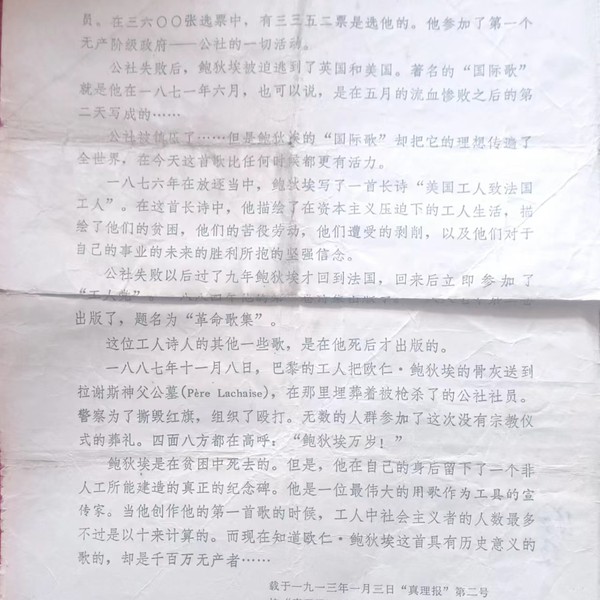 员。在三六〇〇张选票中，有三三五二票是选他的。他参加了第一个
无产阶级政府——公社的一切活动。
公社失败后，鲍狄埃被迫逃到了英国和美国。著名的“国际歌”
就是他在一八七一年六月，也可以说，是在五月的流血惨败之后的第
二天写成的……
公社被镇压了……但是鲍狄埃的“国际歌”却把它的理想传遍了
全世界，在今天这首歌比任何时候都更有活力。
一八七六年在放逐当中，鲍狄埃写了一首长诗“美国工人致法国
工人”。在这首长诗中，他描绘了在资本主义压迫下的工人生活，描
绘了他们的贫困，他们的苦役劳动，他们遭受的剥削，以及他们对于
自己的事业的未来的胜利所抱的坚强信念。
公社失败以后过了九年鲍狄埃才回到法国，回来后立即参加了
出版了，题名为“革命歌集”。
这位工人诗人的其他一些歌，是在他死后才出版的。
一八八七年十一月八日，巴黎的工人把欧仁·鲍狄埃的骨灰送到
拉谢斯神父公墓(Père Lachaise)，在那里埋葬着被枪杀了的公社社员。
警察为了撕毁红旗，组织了殴打。无数的人群参加了这次没有宗教仪
式的葬礼。四面八方都在高呼：“鲍狄埃万岁！”
鲍狄埃是在贫困中死去的。但是，他在自己的身后留下了一个非
人工所能建造的真正的纪念碑。他是一位最伟大的用歌作为工具的宣
传家。当他创作他的第一首歌的时候，工人中社会主义者的人数最多
不过是以十来计算的。而现在知道欧仁·鲍狄埃这首具有历史意义的
歌的，却是千百万无产者……
载于一九一三年一月三日“真理报”第二号